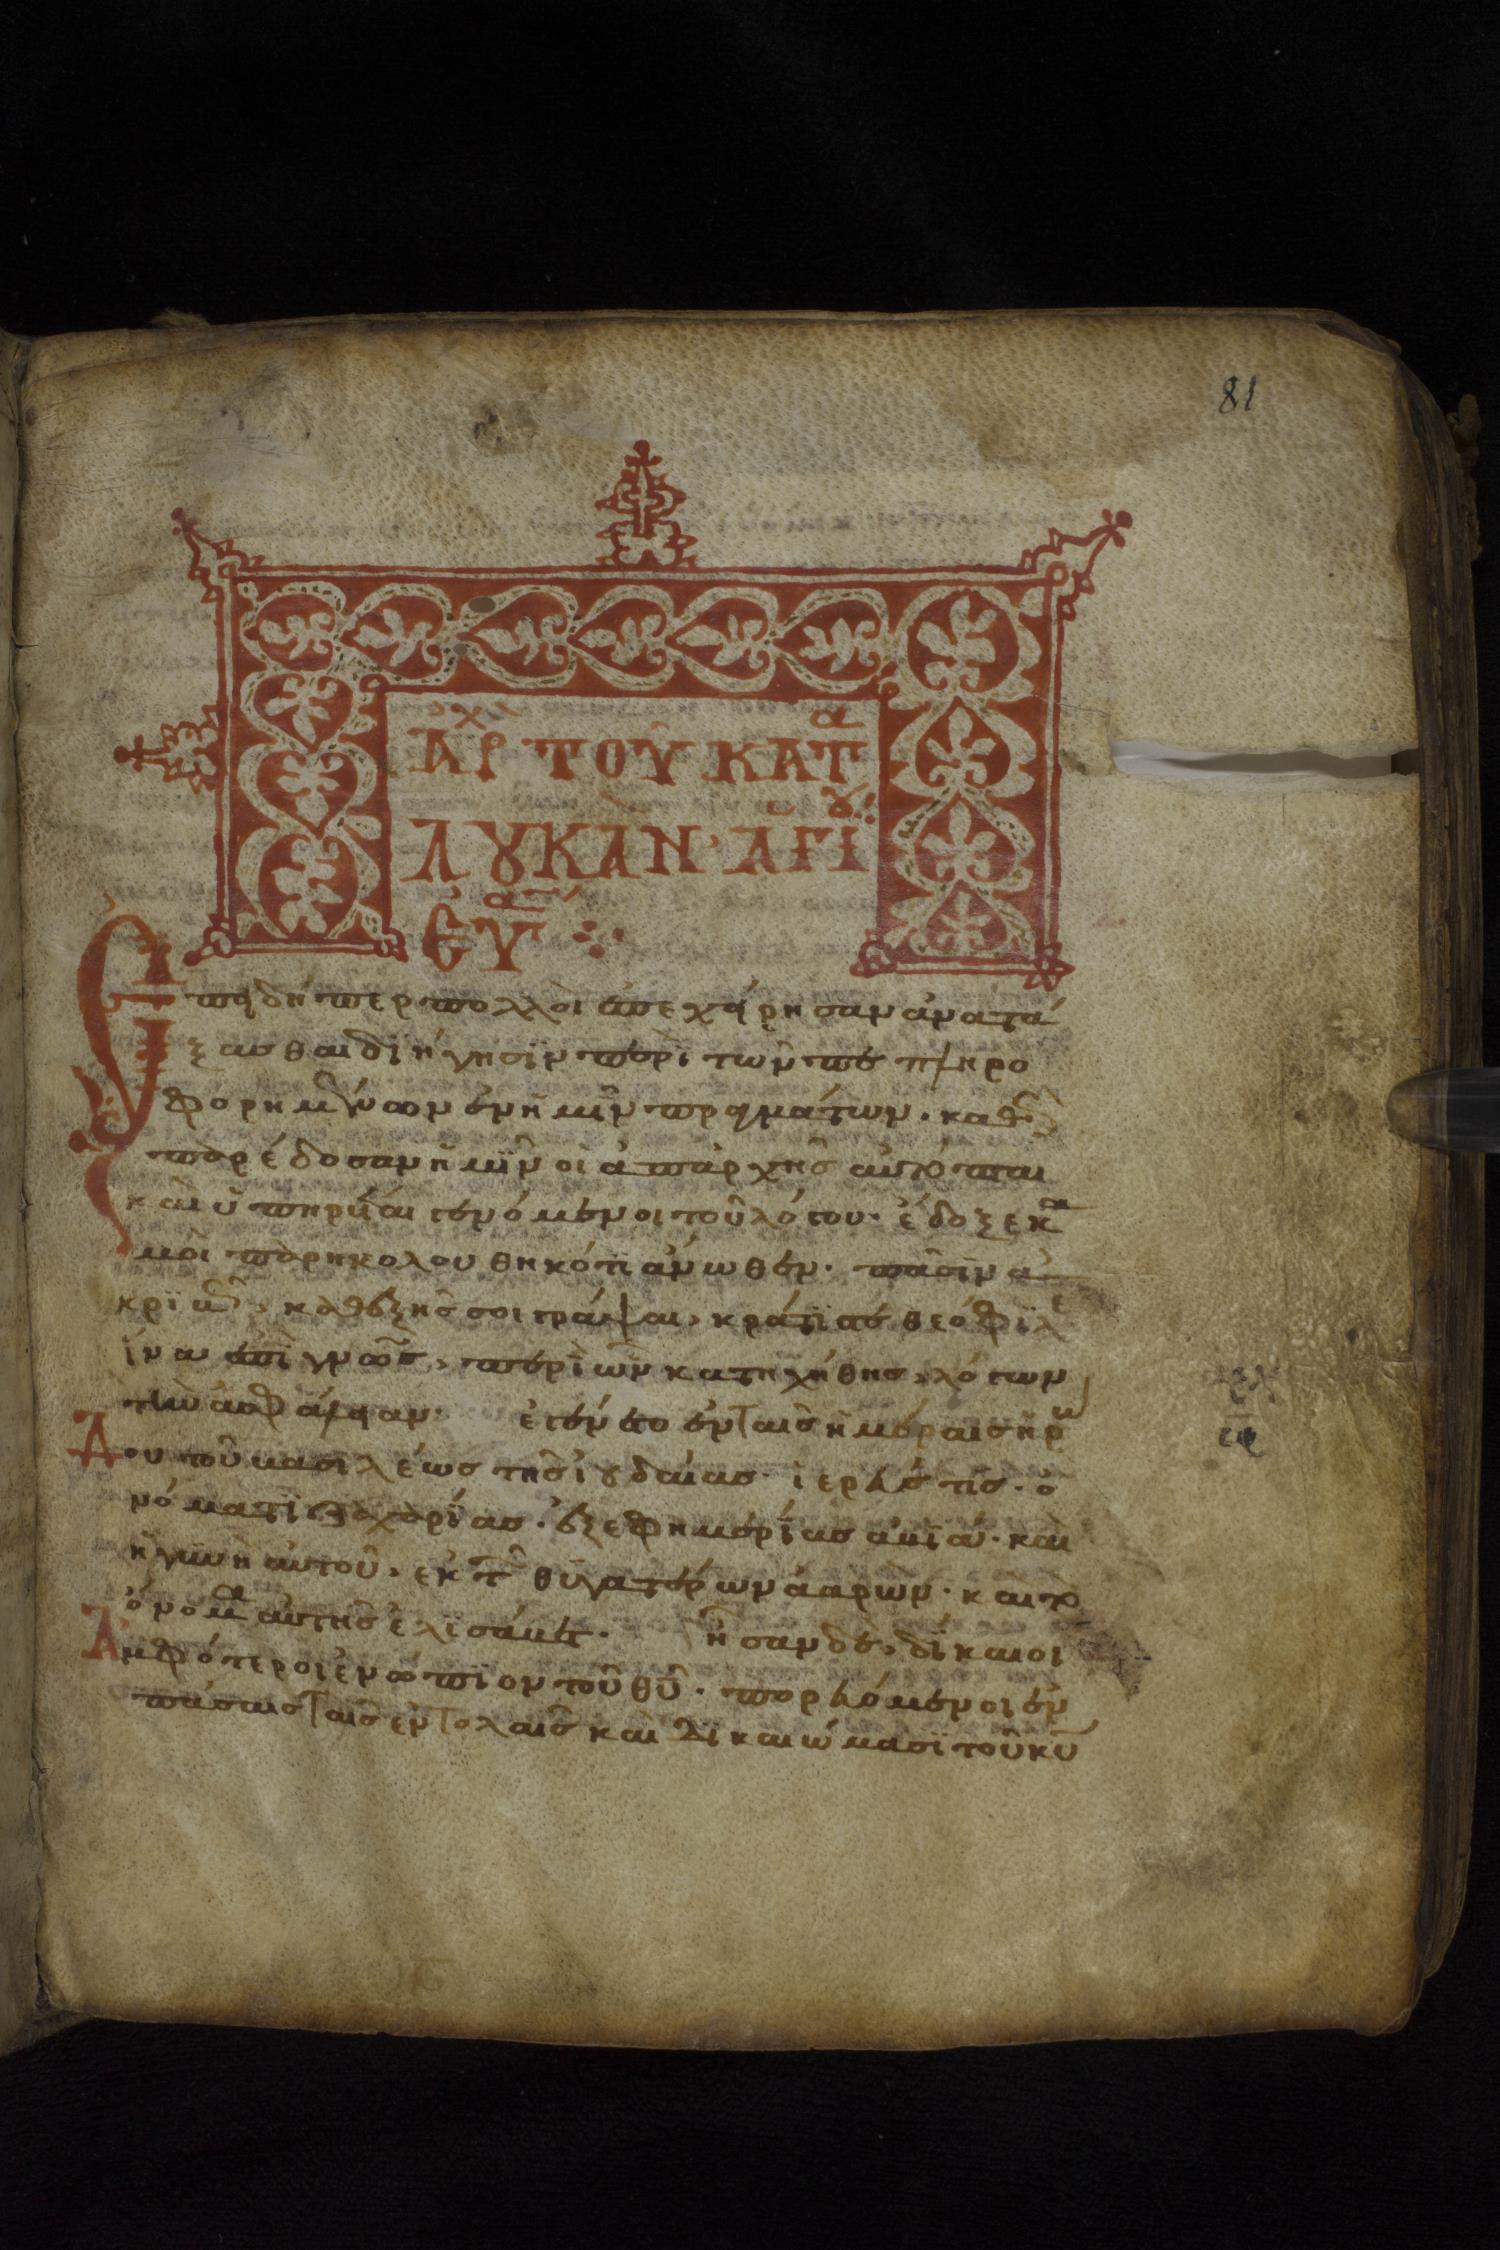 81
ἀρχ τοῦ κατὰ
λουκὰν· ἁγίου
εὐα
Επηδήπερ πολλοὶ ἐπεχείρησαν ἀνατά
ξασθαι διήγησϊν περὶ τῶν πεπληρο
φορημένων ἐν ἡμῖν πραγμάτων· καθὼς
παρέδοσαν ἡμῖν οἱ ἀπαρχῆς αὐτόπται
καὶ ὑπηρέται γενόμενοι τοῦ λόγου· ἔδοξε κα
μοὶ παρηκολουθηκότι ἄνωθεν· πᾶσϊν ἀ
κριβῶς, καθεξῆς σοι γράψαι, κράτιστε θεόφϊλε
ἵνα ἐπιγνῶς, περὶ ὧν κατηχήθης, λόγων
τὴν ἀσφάλειαν· ἐγένετο ἐν ταῖς ἡμέραις ἡρώ
Δου τοῦ βασιλέως τῆς ἰουδαίας· ἱερεύς τις· ὀ
νόματϊ ζαχαρΐας· ἐξ ἐφημερΐας ἀβϊά· καὶ
ἡ γυνὴ αὐτοῦ, ἐκ τῶν θυγατέρων ἀαρών· καὶ τὸ
ὄνομα αὐτῆς ἐλϊσάβετ· ἦσαν δὲ, δίκαιοι
Αμφότεροι ἐνώπϊον τοῦ θυ· πορευόμενοι ἐν
πάσαις ταῖς ἐντολαῖς καὶ δικαιώμασϊ τοῦ κυ